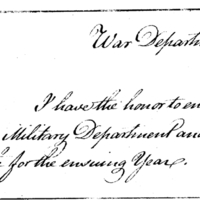 War Departm
I have the honor to en
Military Department and
for the ensuing Year.